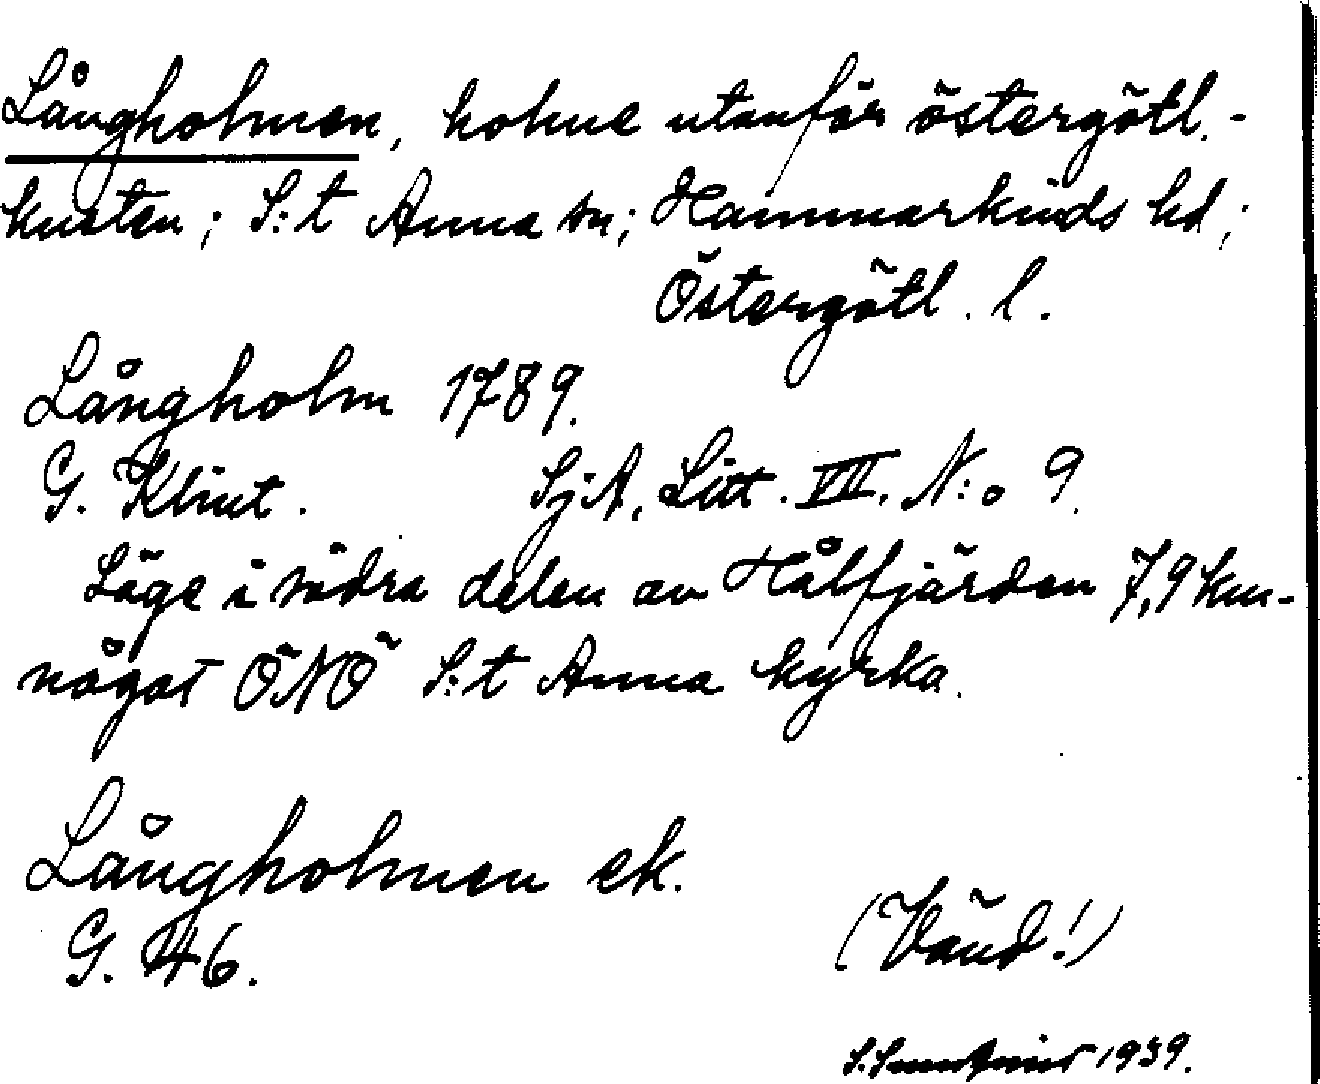 Långholmen, holme utanför östergötl.-
kusten; S:t Anna sn; Hammarkinds hd;
Östergötl. l.
Långholm 1789.
G. Klint. SjA, Litt. VII. N:o 9.
Läge i södra delen av Hålfjärden 7,9 km-
något ÖNÖ S:t Anna kyrka.
Långholmen ek.
G. 46.
(Vänd!)
1939.